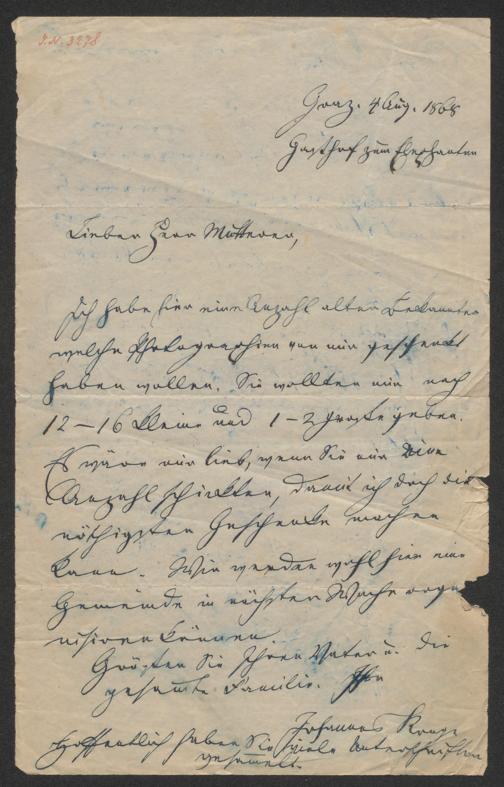 J.N. 3278
Graz. 4 Aug. 1868
Gasthof zum Elephanten
Lieber Herr Mutterer,
Ich habe hier eine Anzahl alter Bekannter
welche Photographien von mir geschenkt
haben wollen. Sie wollten mir noch
12–16 kleine und 1–2 große geben.
Es wäre mir lieb, wenn Sie mir diese
Anzahl schickten, damit ich doch die
nöthigsten Geschenke machen
kann. Wir werden wohl hier eine
Gemeinde in nächster Woche orga
nisiren können.
Grüßen Sie Ihren Vater u. die
gesamte Familie. Ihr
Johannes Ronge
Hoffentlich haben Sie viele Unterschriften
gesammelt.